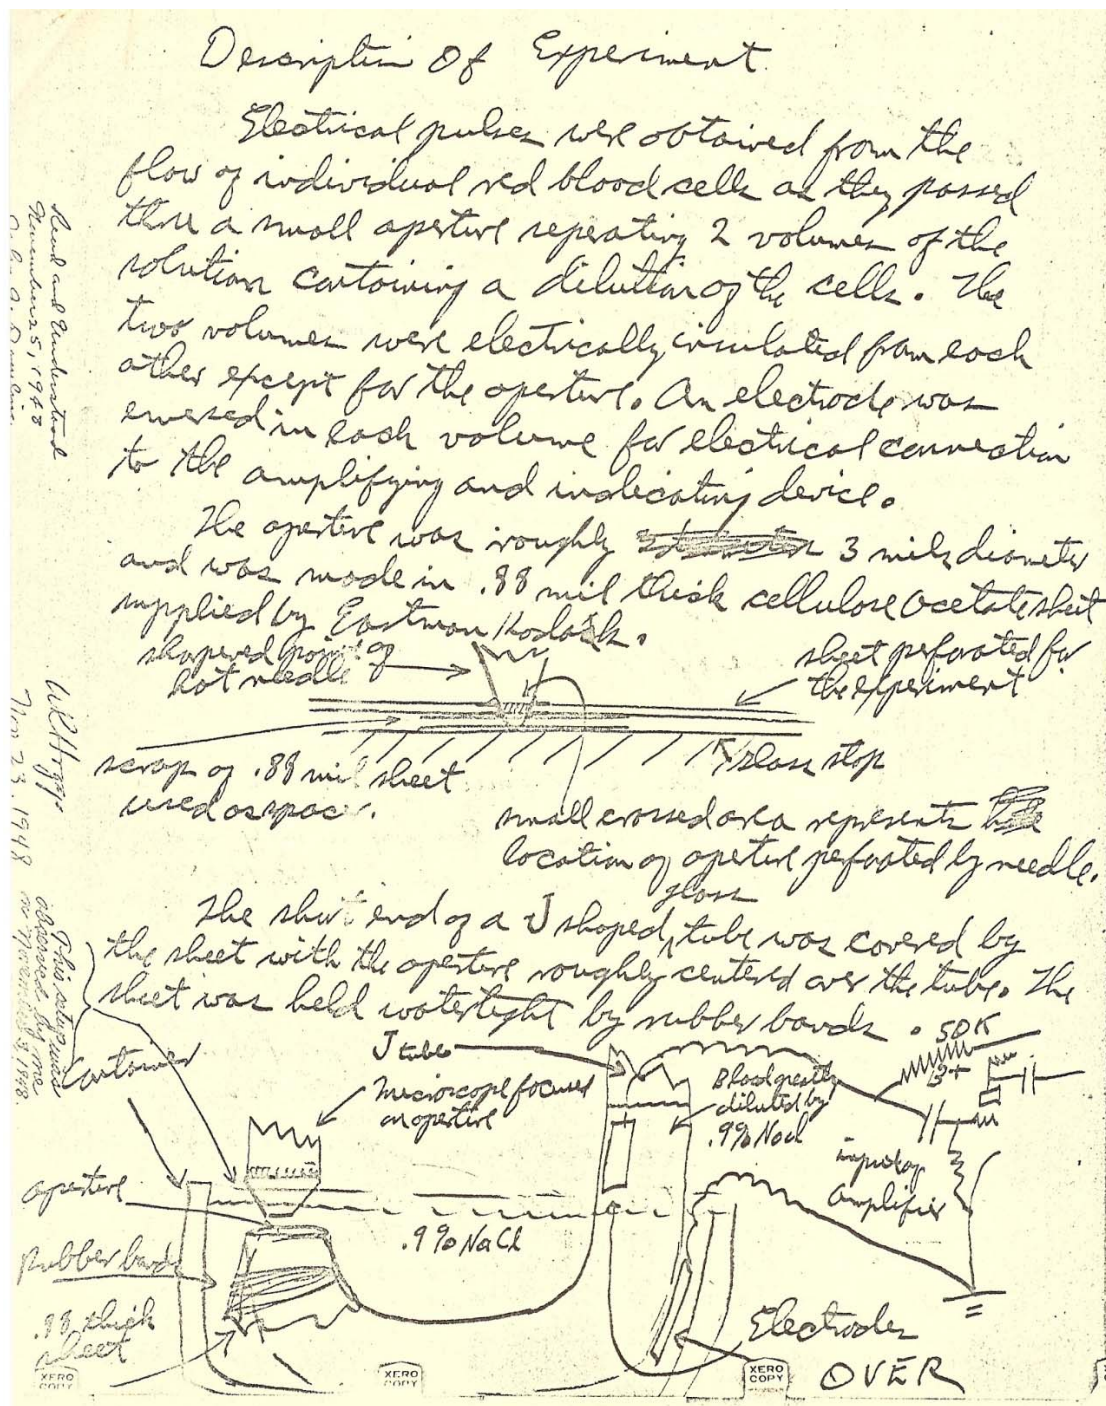 Description Of Experiment
Electrical pulses were obtained from the
flow of individual red blood cells as they passed
thru a small aperture seperating 2 volumes of the
solution containing a dilution of the cells. The
two volumes were electrically insulated from each
other except for the aperture. An electrode was
emersed in each volume for electrical connection
to the amplifying and indicating device.
The aperture was roughly 3 mils diameter
and was made in .88 mil thick cellulose acetate sheet
supplied by Eastman Kodak.
shapened point of
hot needle
sheet perforated for
the experiment
scrap of .88 mil sheet
used as
Glass stop
small crossed area represents
location of aperture perforated by needle.
The short end of a J shaped glass tube was covered by
the sheet with the aperture roughly centered over the tube. The
sheet was held watertight by rubber bands.
J tube
Microscope focused
on aperture
Container
aperture
Rubber bands
.88 thick
sheet
.9% NaCl
Blood greatly
diluted by
.9% Nacl
50K
B+
input of
Amplifier
Electrodes
OVER
Read and Understood
November 25, 1948
WR Hogg
Nov 23, 1948
This setup was
observed by me
on November 1948.
XERO
COPY
XERO
COPY
XERO
COPY